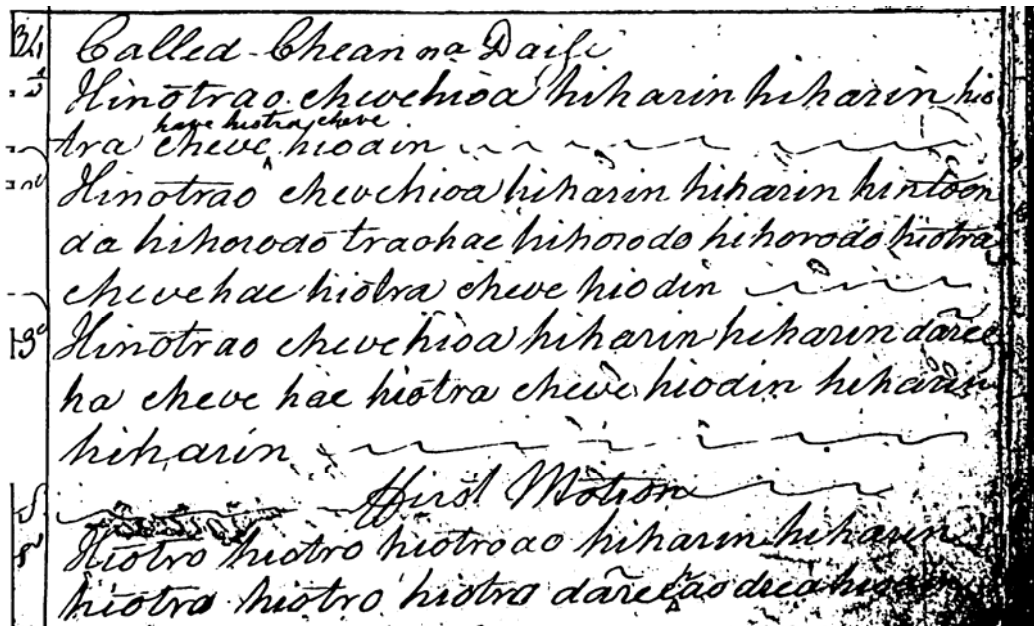 34 Called Cheann na Daise
1st Hinotrao chevehioa hiharin hiharin hio
have hiotra cheve
tra cheve hiodin
2nd Hinotrao chevehioa hiharin hiharin hintoen
da hihorodo traohae hihorodo hihorodo hiotra
chevehae hiotra cheve hiodin
3d Hinotrao chevehioa hiharin hiharin dareē
ha cheve hae hiotra cheve hiodin hiharin
hiharin
First Motion
Hiotro hiotro hiotroao hiharin hiharin
hiotra hiotro hiotra